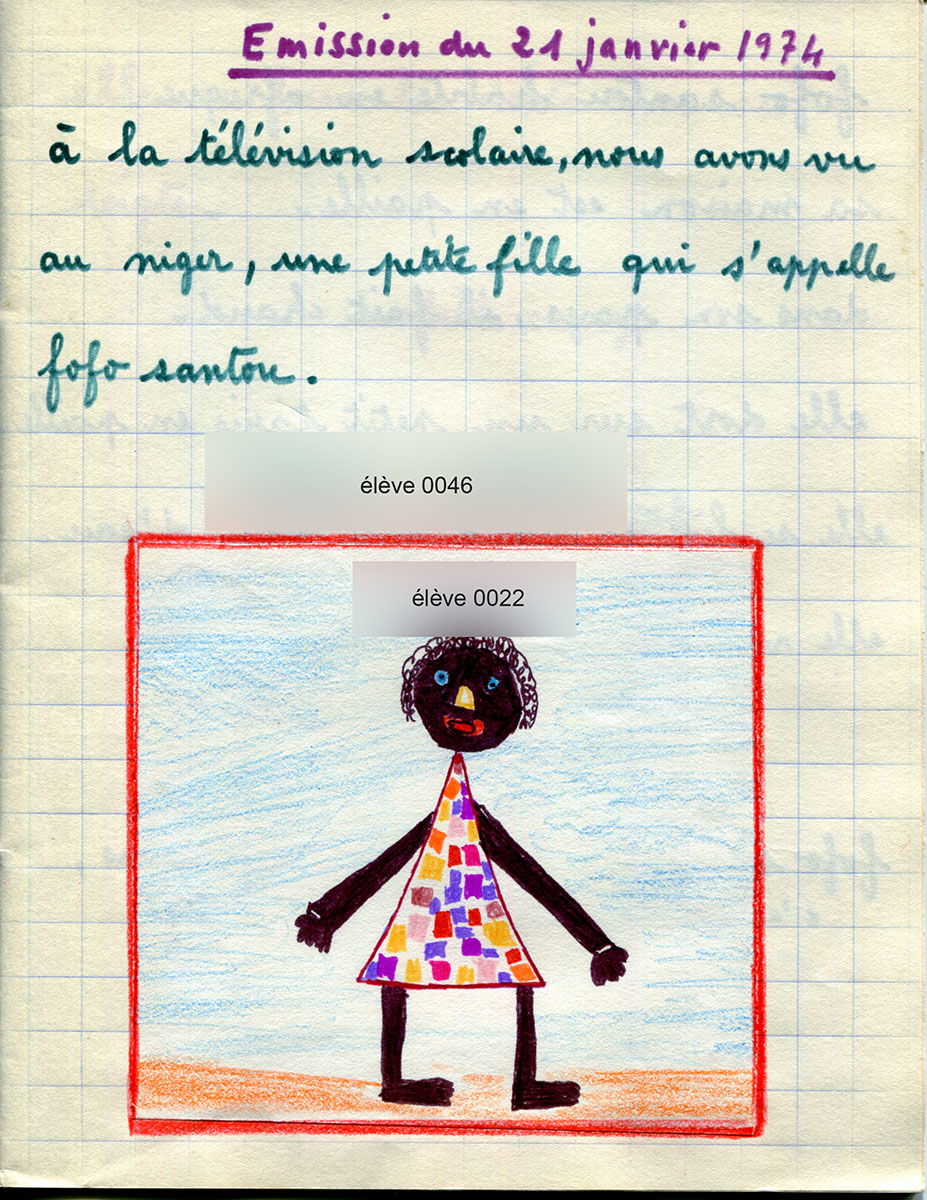 Emission du 21 janvier 1974
à la télévision scolaire, nous avons vu
au niger, une petite fille qui s'appelle
fofo santou.
élève 0046
élève 0022